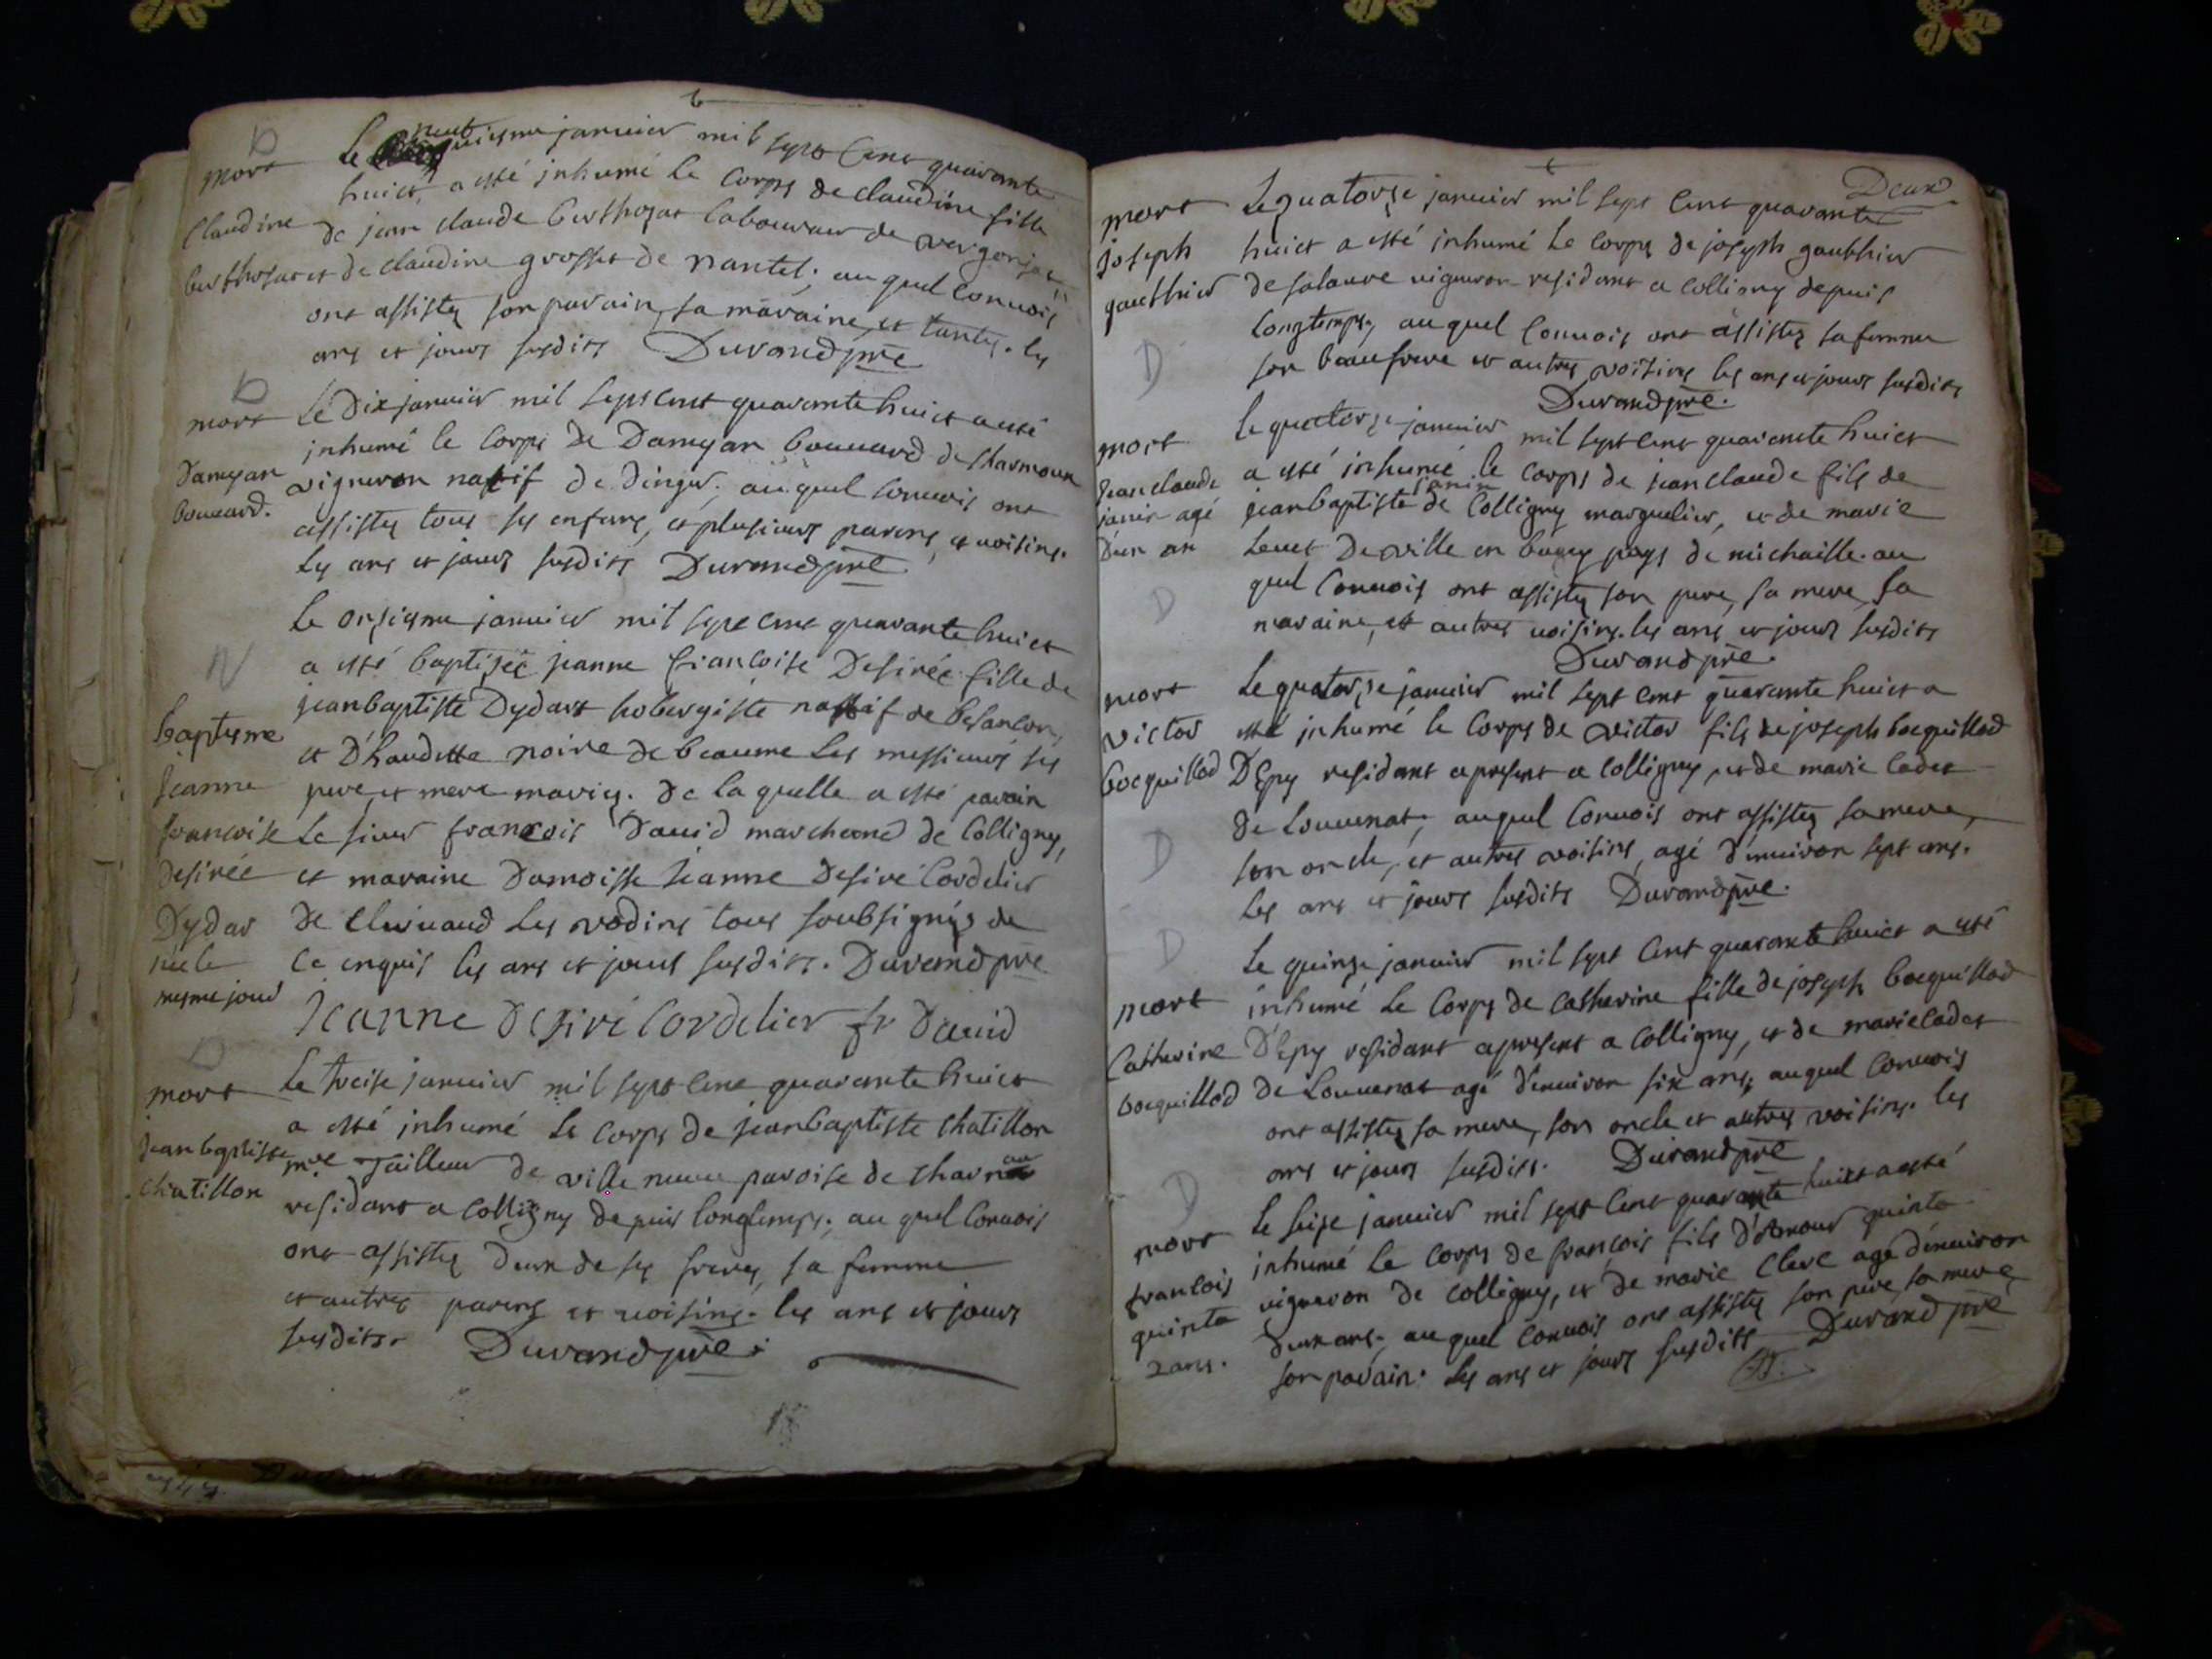 D
mort
Claudine
berthozat
Le neufuiesme januier mil sept Cent quarante
huict, a esté inhumé Le Corps de Claudine fille
de jean claude berthozat laboureur de
et de claudine grosset de nantel; au quel Conuois
ont assistez son parain, sa maraine, et tantes. les
ans et jours susdits Durand pre
D
mort
Damyan
bouuard.
Le Dix januier mil sept Cent quarante huict a esté
inhumé le Corps De Damyan bouuard de Charmoux
vigneron natif de dingier; au quel Conuois ont
assistez tous ses enfans, et plusieurs parens, et voisins.
Les ans et jours susdits Durand pre
N
baptesme
Jeanne
francoise
desirée
Dydar
née le
mesme jour
Le onziesme januier mil sept Cent quarante huict
a esté baptizée jeanne francoise Desirée fille de
jean baptiste Dydart hobergiste natif de besancon,
et D'haudette noire de beaume Les messieurs ses
pere et mere mariez. De la quelle a esté parain
Le sieur francois Dauid marchand de Colligny,
et maraine Damoisse Jeanne Desiré Cordelier
de Cluiuaud Les vodins tous soubsignés de
Ce enquis les ans et jours susdits. Durand pre
Jeanne Desiré Cordelier fr Dauid
D
mort
Jean baptiste
chatillon
Le treise januier mil sept Cent quarante huict
a esté inhumé Le Corps de jean baptiste Chatillon
mre Tailleur de ville neuue paroise de
residant a Colligny depuis longtemps; au quel Conuois
ont assistez deux de ses freres, sa femme
et autres parens et uoisins. les ans et jours
susdits. Durand pre.
Deux
mort
joseph
gauthier
D
Le quatorze januier mil sept Cent quarante
huict a esté inhumé Le Corps de joseph gauthier
de salaure uigneron residant a Colligny depuis
Longtemps, au quel Conuois ont assistez sa femme
son beau frere et autres voisins les ans et jours susdits
Durand pre.
mort
Jean claude
janin agé
d'un an
D
le quatorze januier mil sept cent quarante huict
a esté inhumé le Corps de jean claude fils de
jean baptiste janin de Colligny marguelier, et de marie
Leuet De ville en bugey pays de michaille. au
quel Conuois ont assistez son pere, sa mere, sa
maraine, et autres uoisins. les ans et jours susdits
Durand pre.
mort
victor
bocquillod
D
Le quatorze januier mil sept cent quarante huict a
esté inhumé le Corps de victor fils de joseph bocquillod
D'Epy residant a present a Colligny, et de marie Cadet
de Louuenat; auquel Conuois ont assistez sa mere,
son oncle, et autres voisins, agé d'enuiron sept ans.
Les ans et jours susdits Durand pre.
D
mort
Catherine
bocquillod
Le quinze januier mil sept Cent quarante huict a esté
inhumé Le Corps de Catherine fille de joseph bocquillod
D'Epy residant apresent a Colligny, et de marie Cadet
de Louuenat agé d'enuiron six ans; auquel Conuois
ont assistez sa mere, son oncle et autres voisins. les
ans et jours susdits. Durand pre
D
mort
francois
quinto
2 ans.
Le seize januier mil sept Cent quarante huict a esté
inhumé Le Corps de françois fils d'amour quinto
uigneron de Colligny, et de marie Clerc agé d'enuiron
deux ans; au quel Conuois ont assistez son pere, sa mere,
son parain. Les ans et jours susdits Durand pre